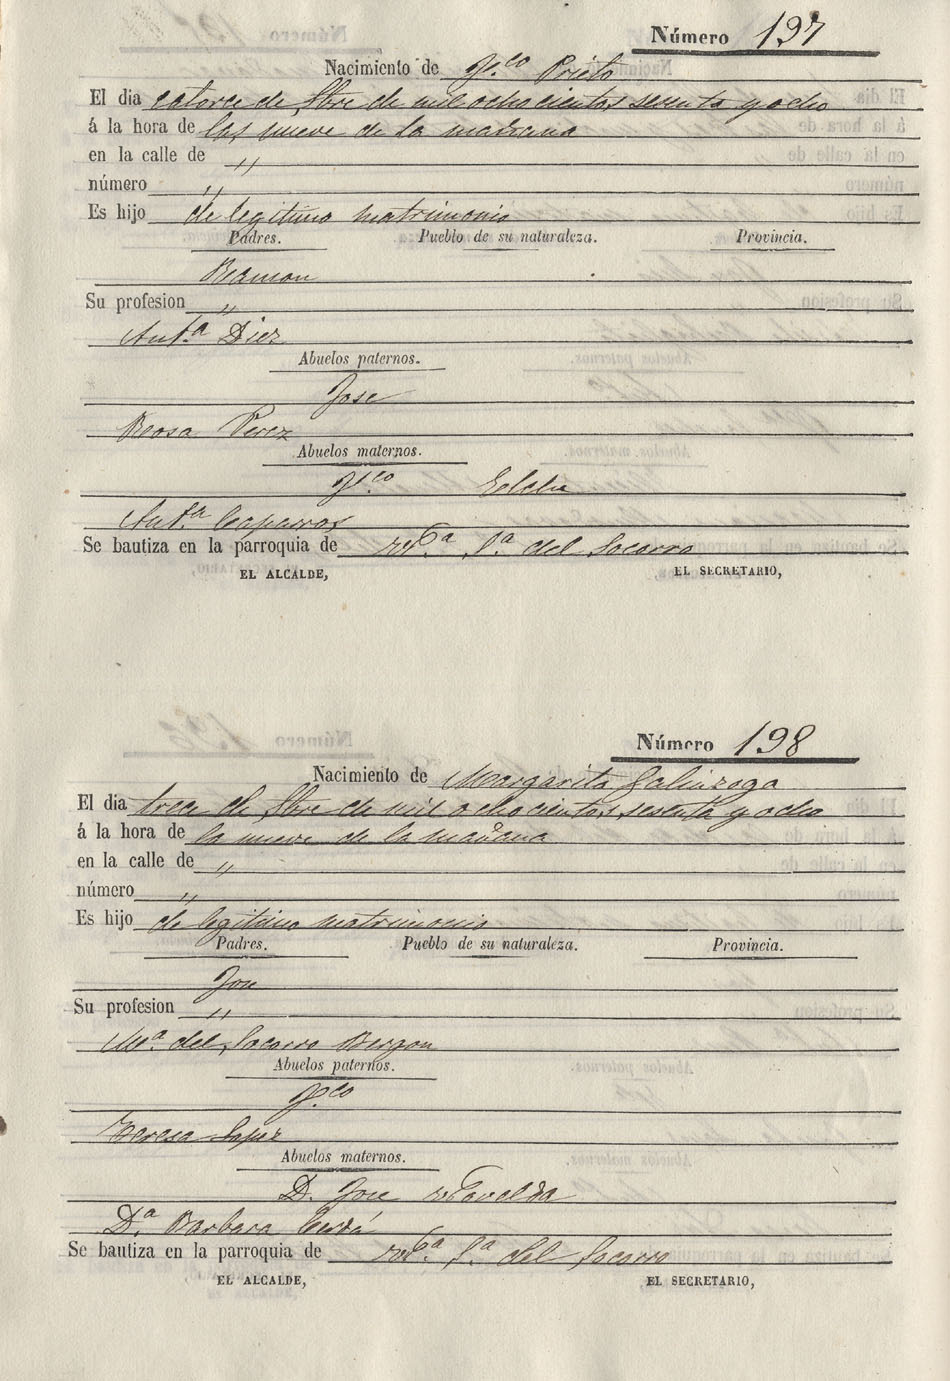 Número 197
Nacimiento de Fco Prieto
El dia catorce de 8bre de mil ochocientos sesenta y ocho
á la hora de las nueve de la mañana
en la calle de "
número "
Es hijo de legitimo matrimonio
Padres. Pueblo de su naturaleza. Provincia.
Ramon
Su profesion "
Anta Diez
Abuelos paternos.
Jose
Rosa Perez
Abuelos maternos.
Fco
Anta Caparros
Se bautiza en la parroquia de Sa del Socorro
EL ALCALDE, EL SECRETARIO,
Número 198
Nacimiento de Margarita Galinzoga
El dia trece de 8bre de mil ochocientos sesenta y ocho
á la hora de la nueve de la mañana
en la calle de "
número "
Es hijo de legitimo matrimonio
Padres. Pueblo de su naturaleza. Provincia.
Jose
Su profesion "
Ma del Socorro
Abuelos paternos.
Fco
Teresa Lopez
Abuelos maternos.
D. Jose
Da Barbara Cerdá
Se bautiza en la parroquia de Sa del Socorro
EL ALCALDE, EL SECRETARIO,